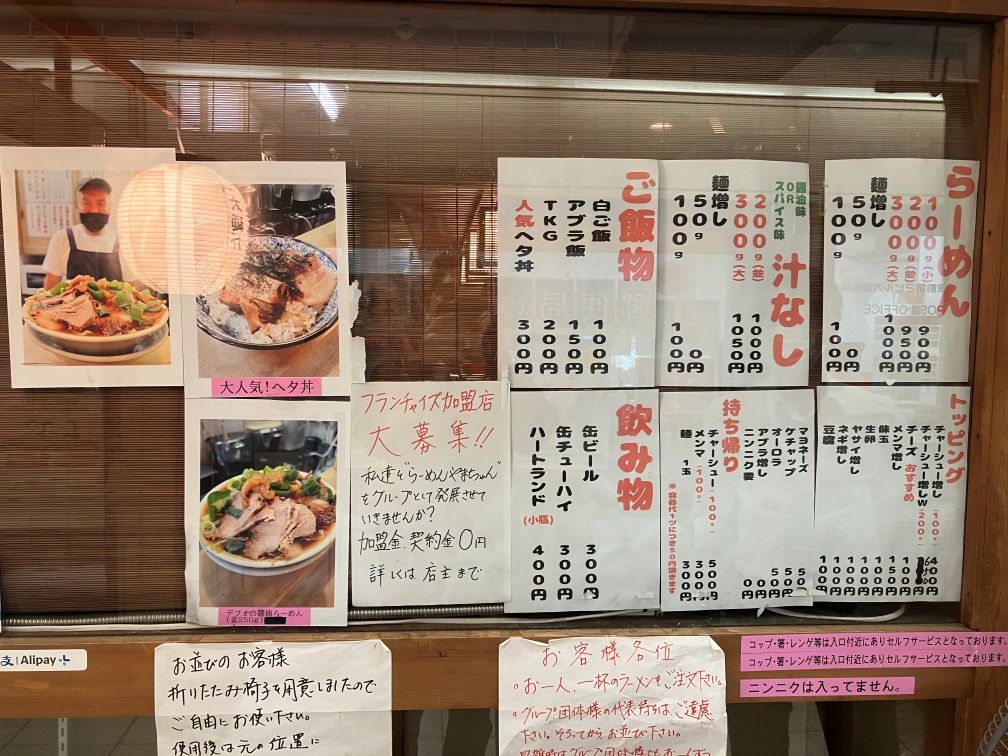 らーめん
100g(小) 900円
200g(並) 950円
300g(大) 1000円
麺増し
50g 0円
100g 100円
醤油味
OR
スパイス味
汁なし
200g(並) 1000円
300g(大) 1050円
麺増し
50g 0円
100g 100円
ご飯物
白ご飯 100円
アブラ飯 150円
TKG 200円
人気ヘタ丼 300円
トッピング
チャーシュー増し(100g)
チャーシュー増しW(200g)
チーズ おすすめ
メンマ増し
味玉
生卵
ヤサイ増し
ネギ増し
豆腐
マヨネーズ
ケチャップ
オーロラ
アブラ増し
ニンニク要
持ち帰り
チャーシュー(100g) 500円
メンマ(100g)
麺 1玉
※容器代1ツにつき50円頂きます
飲み物
缶ビール 300円
缶チューハイ 300円
ハートランド(小瓶) 400円
大人気!ヘタ丼
デフォの醤油らーめん
(並250g)
フランチャイズ加盟店
大募集!!
私達とらーめんやまちゃんを
グループとして発展させて
いきませんか?
加盟金、契約金0円
詳しくは店主まで
Alipay
お並びのお客様
折りたたみ椅子を用意しましたので
ご自由にお使い下さい。
使用後は元の位置に
お客様各位
。お一人、一杯のラーメンをご注文下さい。
。グループ、団体様の代表待ちはご遠慮
下さい。そろってからお並び下さい。
コップ・箸・レンゲ等は入口付近にありセルフサービスとなっております。
コップ・箸・レンゲ等は入口付近にありセルフサービスとなっております。
ニンニクは入ってません。